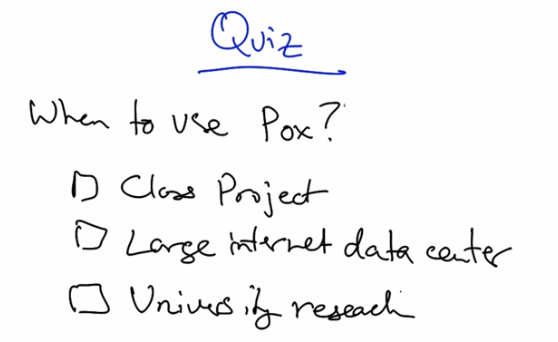 Quiz
When to use Pox?
Class Project
Large internet data center
University reseach